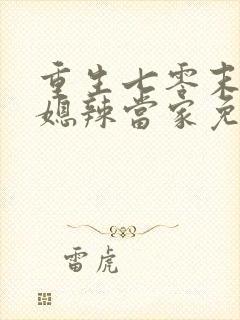 重生七零末
媳辣當家免
雷虎